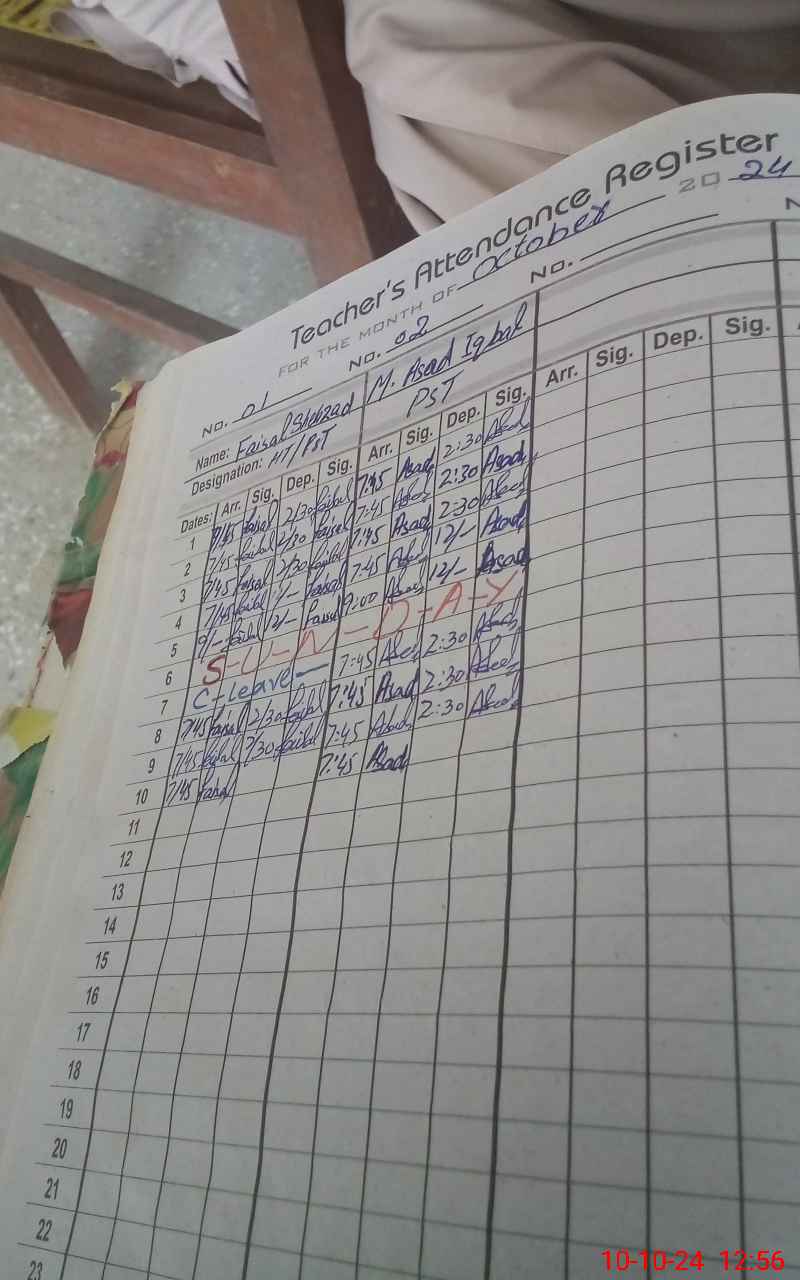 Teacher's Attendance Register
FOR THE MONTH OF October 20 24
NO. 01 NO. 02 NO. N
Name: Faisal Shehzad M. Asad Iqbal
Designation: HT/PST PST
Dates: Arr. Sig. Dep. Sig. Arr. Sig. Dep. Sig. Arr. Sig. Dep. Sig.
1 7/45 Faisal 2/30 Faisal 7:45 Asad 2:30 Asad
2 7/45 Faisal 2/30 Faisal 7:45 Asad 2:30 Asad
3 7/45 Faisal 2/30 Faisal 7:45 Asad 2:30 Asad
4 7/45 Faisal 12/- Faisal 7:45 Asad 12/- Asad
5 9/- Faisal 12/- Faisal 9:00 Asad 12/- Asad
6 S-U-N-D-A-Y
7 C-Leave- 7:45 Asad 2:30 Asad
8 7/45 Faisal 2/30 Faisal 7:45 Asad 2:30 Asad
9 7/45 Faisal 2/30 Faisal 7:45 Asad 2:30 Asad
10 7/45 Faisal 7:45 Asad
11
12
13
14
15
16
17
18
19
20
21
22
23
10-10-24 12:56